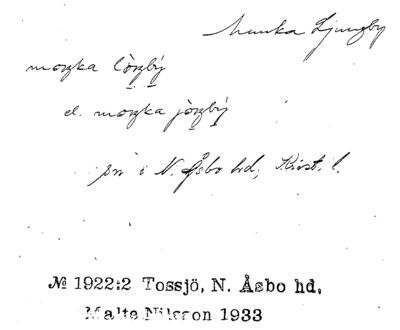 Munka Ljungby
moŋka lò̱ŋbý̱
el. moŋka jò̱ŋbý̱
sn i N. Åsbo hd, Krist. l.
№ 1922:2 Tossjö, N. Åsbo hd,
Malte Nilsson 1933